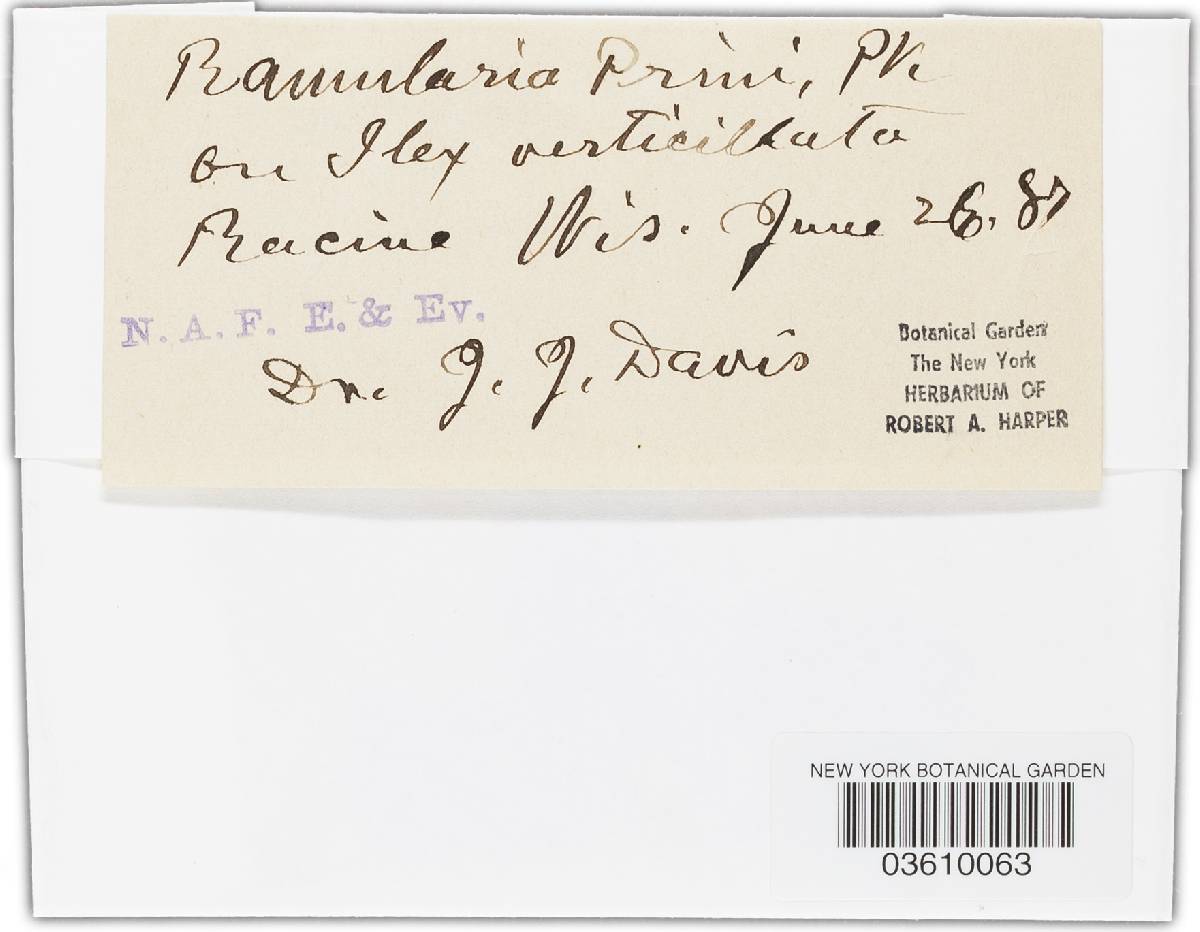 Ramularia Prini, Pk
on Ilex verticillata
Racine Wis. June 26. 87
N. A. F. E. & Ev.
Dr. J. J. Davis
Botanical Garden
The New York
HERBARIUM OF
ROBERT A. HARPER
NEW YORK BOTANICAL GARDEN
03610063